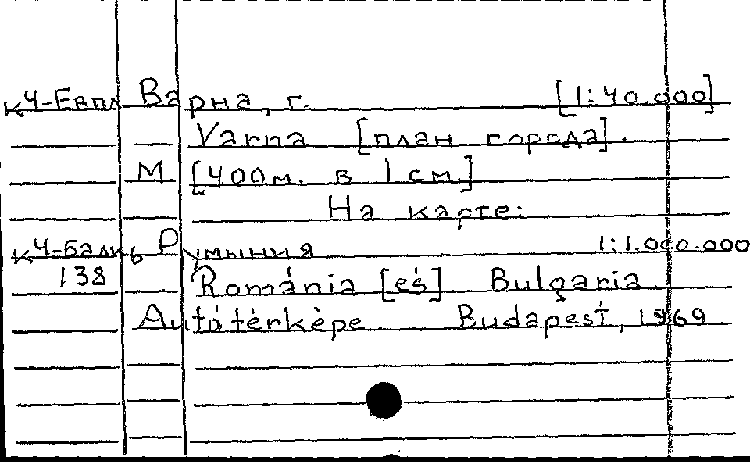 к4-Евпл Варна, г. [1:40.000]
Varna [план города].
М [400м. в 1 см]
На карте:
к4-Балкь Румыния 1:1.000.000
138 Románia [és] Bulgaria
Autótérképe Budapest, 1969